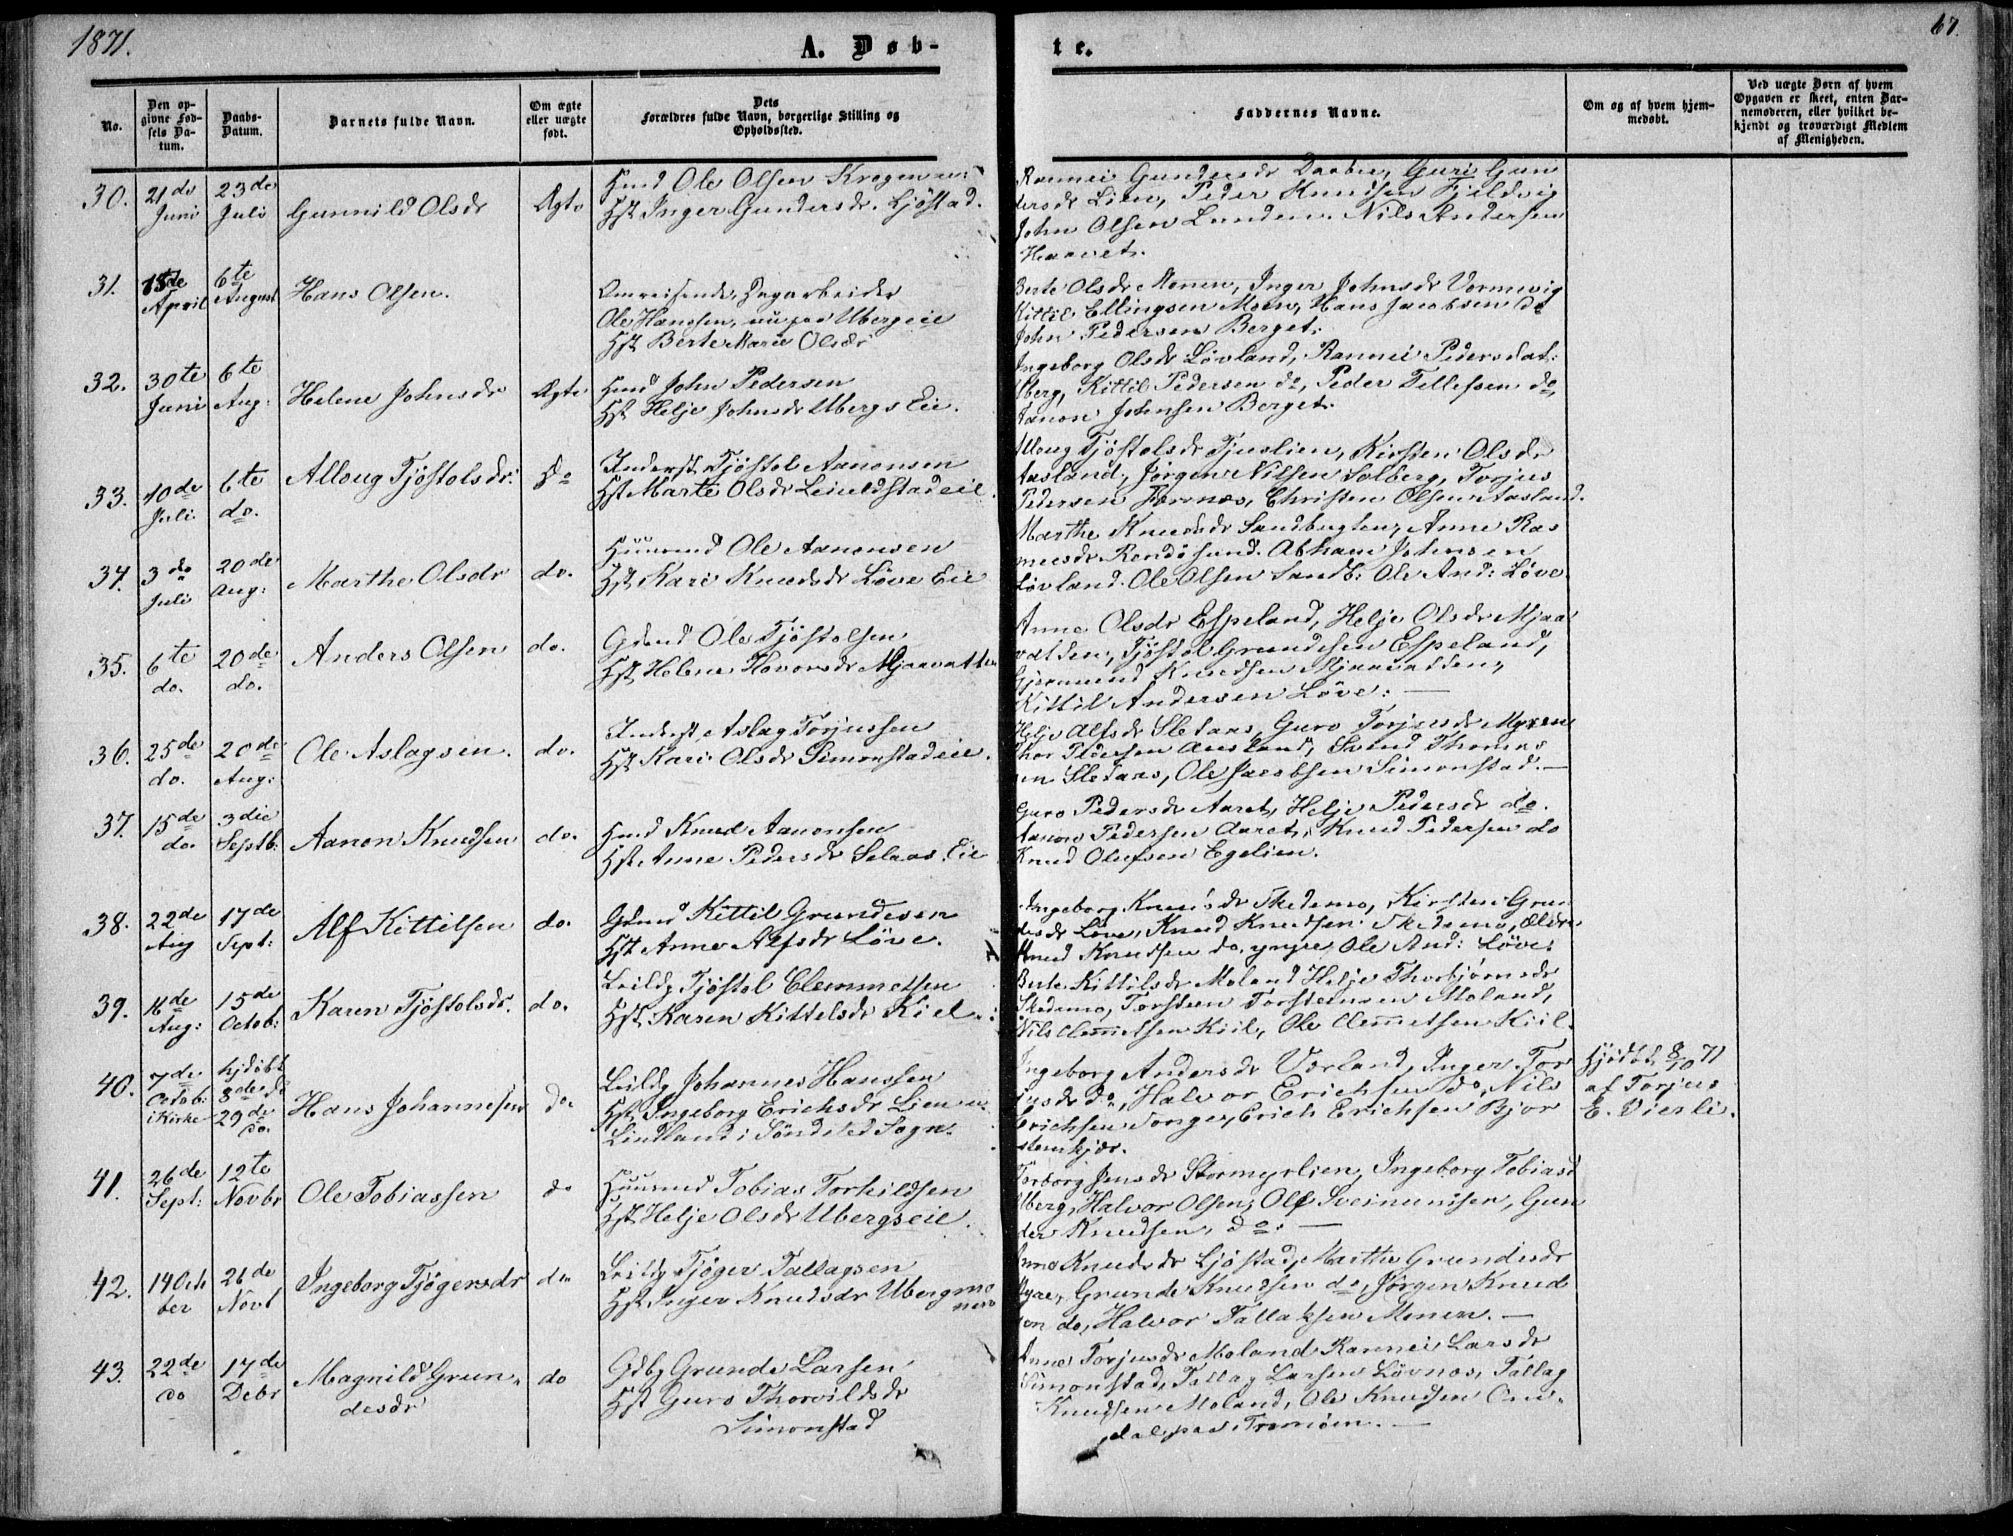 1871.
A. Døb-
te.
67.
No.
Den op-
givne Fød-
sels Da-
tum.
Daabs-
Datum.
Barnets fulde Navn.
Om ægte
eller uægte
født.
Dets
Forældres fulde Navn, borgerlige Stilling og
Opholdssted.
Faddernes Navne.
Om og af hvem hjem-
medøbt.
Ved uægte Børn af hvem
Opgaven er skeet, enten Bar-
nemoderen, eller hvilket be-
kjendt og troværdigt Medlem
af Menigheden.
30. 21de Juni 23de Juli Gunnild Olsdr Ægte
Husmd Ole Olsen
Hst Inger Gundersdr. Ljøstad.
Rannei Gundersdr Daaben, Guri Gun
dersdr Lien, Peder Knudsen Fjeldvig
John Olsen Lunden, Nils Andersen
Haavet.
31. 15de April 6te August Hans Olsen.
Omreisende, Dagarbeider
Ole Hansen, nu paa Ubergseie
Hst Berte Marie Olsdr
Berte Olsdr Monen, Inger Johnsdr Vormvig
Kittil Ellingsen Moen, Hans Jacobsen do
John Pedersen Berget.
32. 30te Juni 6te Aug: Helene Johnsdr Ægte
Husmd John Pedersen
Hst Helje Johnsdr Ubergs Eie.
Ingeborg Olsdr Løvland, Rannei Pedersdat:
Uberg, Kittil Pedersen do, Peder Tellefsen do
Aanon Johnsen Berget.
33. 10de Juli 6te do. Alloug Tjøstolsdr. Do
Inderst Tjøstol Aanonsen
Hst Marte Olsdr Leiulstad eie
Alloug Tjøstolsdr Tjuslien, Kirsten Olsdr
Aasland, Jørgen Nilsen Solberg, Torjus
Pedersen Færenæs, Christen Olsen Aasland.
34. 3de Juli 20de Aug: Marthe Olsdr do.
Huusmd Ole Aanonsen
Hst. Kari Knudsdr Løve Eie
Marthe Knudsdr Sandbugten, Anne Ras
musdr Rendesund. Abham Johnsen
Løvland. Ole Olsen Sandb: Ole And: Løve.
35. 6te do. 20de do. Anders Olsen do.
Gdmd Ole Tjøstolsen
Hst Helene Hovorsdr Mjaavatten
Anne Olsdr Espeland, Helje Olsdr Mjaa
vatten, Tjøstol Grundesen Espeland,
Gjermund Knudsen Mjaavatten,
Kittil Andersen Løve. —
36. 25de do. 20de Aug: Ole Aslagsen. do.
Inderst, Aslag Torjussen
Hst Kari Olsdr Simonstad eie.
Helje Alfsdr Sletaas, Guro Torjusdr Myren
Thor Pedersen Aasland, Svend Thomas
sen Sletaas, Ole Jacobsen Simonstad. —
37. 15de do. 3die Septb: Aanon Knudsen do.
Husmd Knud Aanonsen
Hst Anne Pedersdr Selaas Eie
Guro Pedersdr Aaret, Helje Pedersdr do.
Aanon Pedersen Aaret, Knud Pedersen do
Knud Olufsen Egelien.
38. 22de Aug 17de Sept: Alf Kittilsen do.
Gdmd Kittil Grundesen
Hst Anne Alfsdr Løve.
Ingeborg Knudsdr Skedsmo, Kirsten Grun
desdr Løve, Knud Knudsen Skedsmo, ældre
Knud Knudsen do yngre, Ole And: Løve.
39. 16de Aug: 15de Octob: Karen Tjøstolsdr. do.
Leildg Tjøstol Clemmetsen
Hst. Karen Kittelsdr Kiel.
Berte Kittilsdr Moland Helje Thorbjørnsdr
Skedsmo, Torsten Torstensen Moland,
Nils Clemetsen Kiil, Ole Clemetsen Kiil.
40. 7de Octob: i Kirke hjdøbt 8de do 29de do. Hans Johannesen Do
Leildg Johannes Hanssen
Hst. Ingeborg Erichsdr Lien
Lindland i Søndeled Sogn.
Ingeborg Andersdr Vorland, Inger Tor
jusdr do, Halvor Erichsen do, Nils
Erichsen Songe, Erich Erichsen Bjor
stenskjær.
Hjdøbt 8/10 71
af Torjus
E. Vierli.
41. 26de Sept: 12te Novbr Ole Tobiassen do
Huusmd Tobias Torkildsen
Hst Helje Olsdr Ubergseie.
Torborg Jensdr Stormyrlien, Ingeborg Tobiasd
Uberg, Halvor Olsen, Ole Sveinunsen, Gun
der Knudsen, do. —
42. 14 Octo ber 26de Novb Ingeborg Tjøgersdr do
Leildg Tjøger Tallagsen
Hst Inger Knudsdr Ubergmo
nen
Anne Knudsdr Ljøstad, Marthe Grundesdr
Grunde Knudsen do, Jørgen Knud
sen do, Halvor Tallaksen Monen. —
43. 22de do 17de Debr Magnild Grun-
desdr do
Gdbg Grunde Larsen
Hst Guro Thorvildsdr
Simonstad
Anne Torjusdr Moland Rannei Larsdr
Simonstad, Tallag Larsen Løvnes, Tallag
Knudsen Moland, Ole Knudsen
dal, paa Tromøen. —